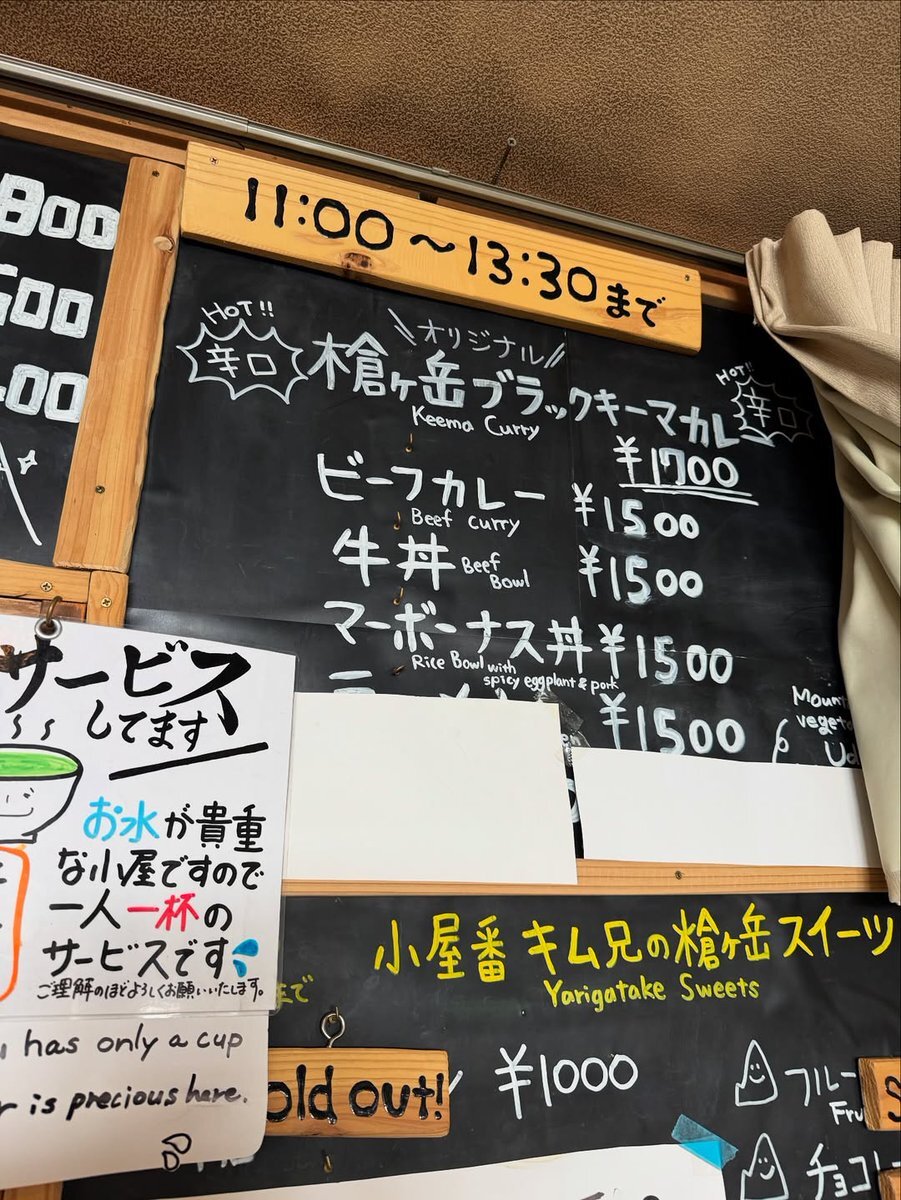 800
500
400
11:00～13:30まで
HOT!!
辛口
オリジナル
槍ヶ岳ブラックキーマカレー
Keema Curry
HOT!!
辛口
¥1700
ビーフカレー ¥1500
Beef curry
牛丼 Beef Bowl ¥1500
マーボーナス丼 ¥1500
Rice Bowl with
spicy eggplant & pork
¥1500
サービス
してます
お水が貴重
な小屋ですので
一人一杯の
サービスです
ご理解のほどよろしくお願いいたします。
has only a cup
is precious here.
小屋番 キム兄の槍ヶ岳スイーツ
Yarigatake Sweets
まで
old out!
¥1000
フルー
Fru
チョコレ